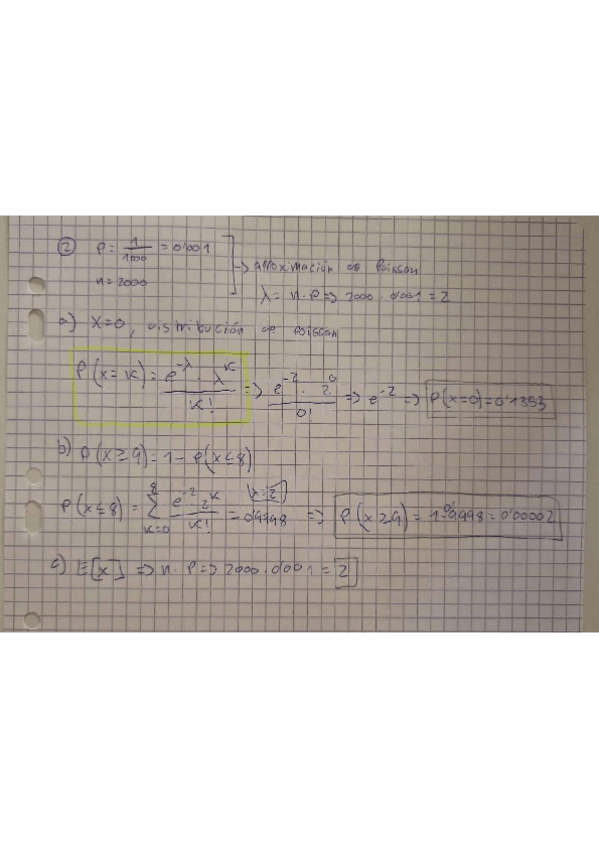 ② P = 1/1000 = 0'001
n = 2000
→ Aproximación de Poisson
λ = n · P => 2000 · 0'001 = 2
a) X=0, distribución de Poisson
P(x=K) = e^-λ · λ^K / K! => e^-2 · 2^0 / 0! => e^-2 => P(x=0)=0'1353
b) P(x≥9) = 1 - P(x≤8)
P(x≤8) = 8 Σ K=0 e^-2 2^K / K! = 0'9998 (λ=2) => P(x≥9) = 1-0'9998 = 0'00002
c) E[x] => n · P => 2000 · 0'001 = 2